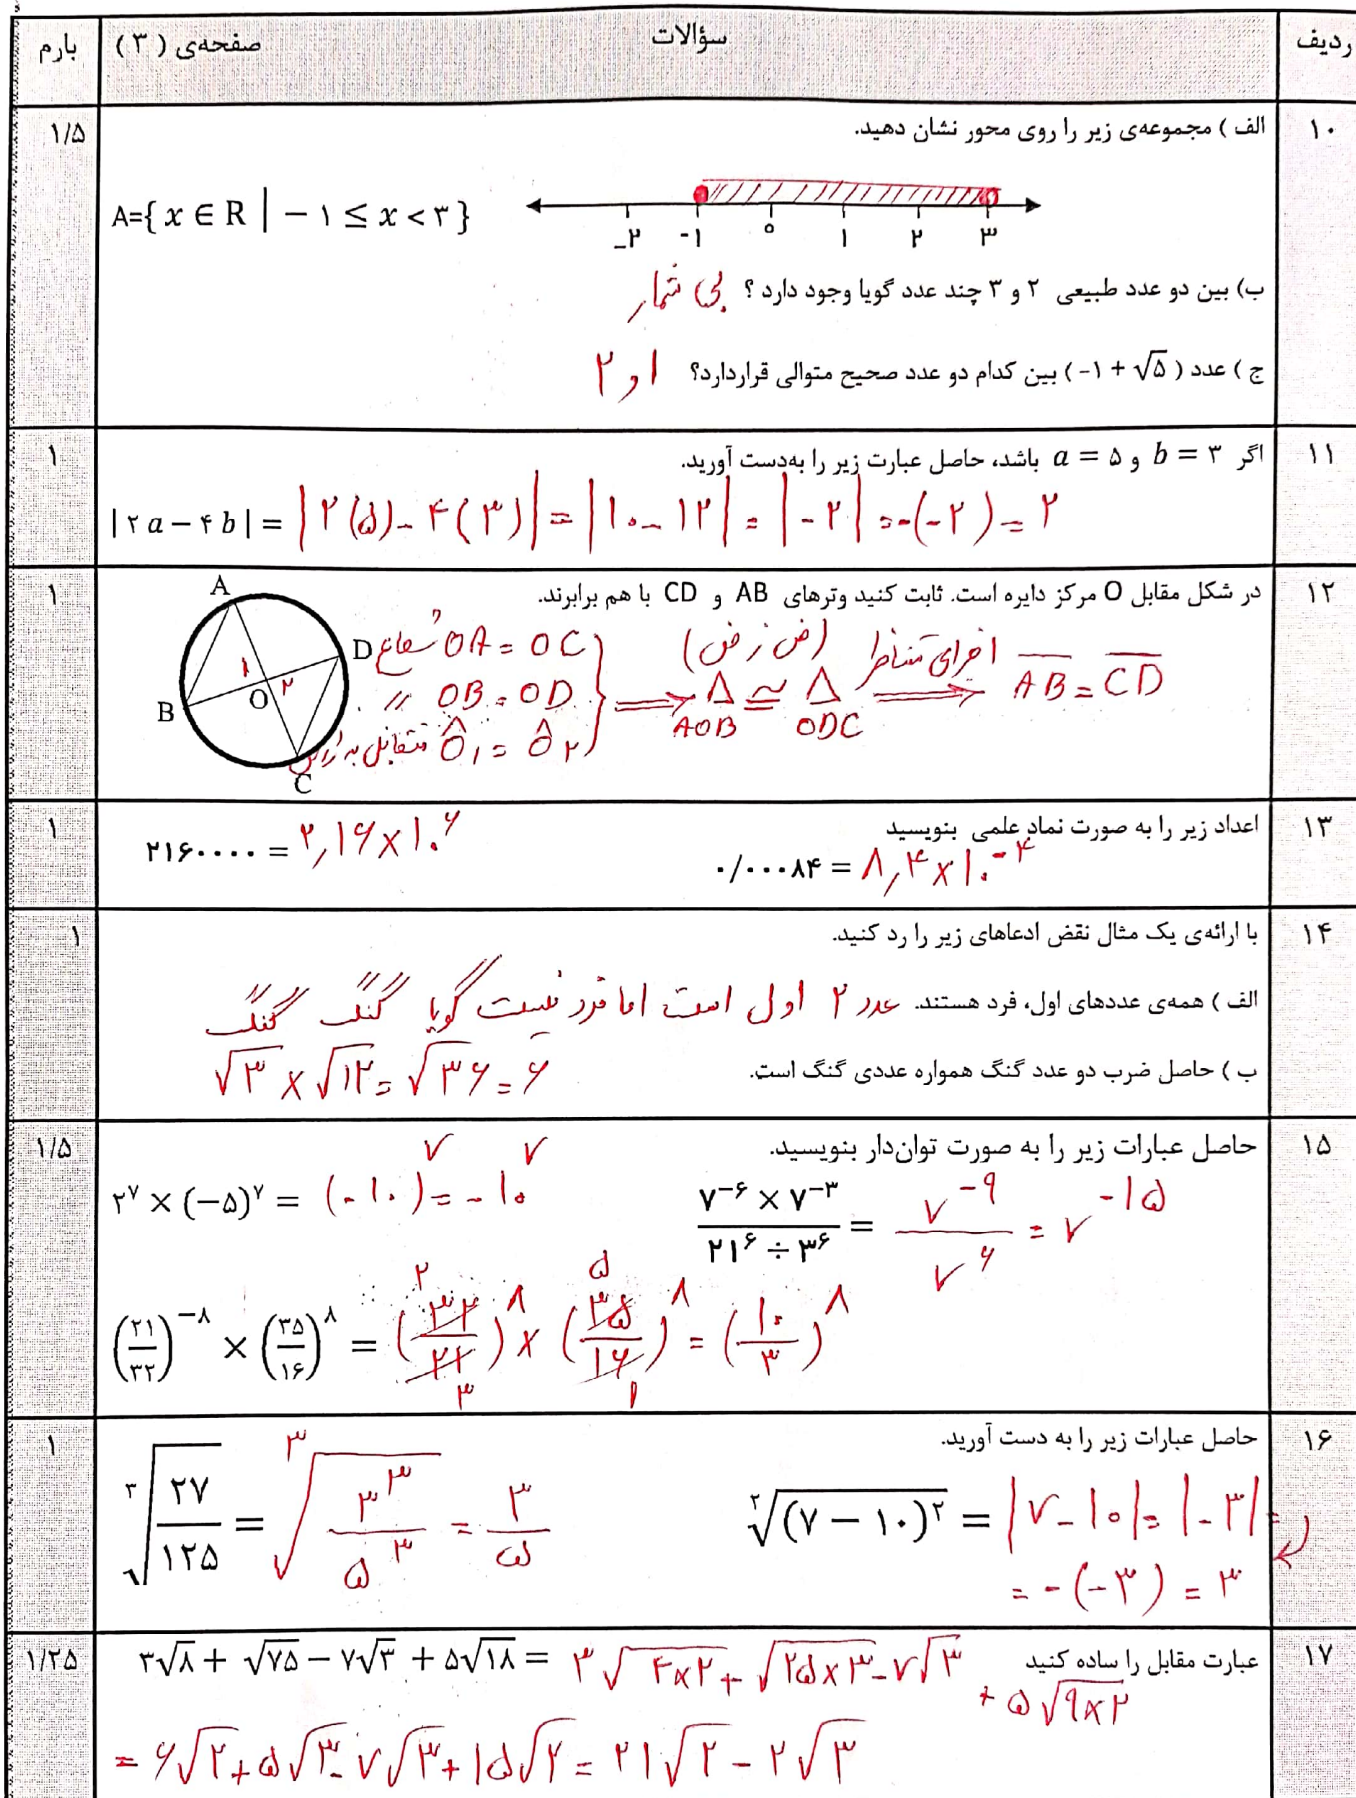 ردیف سؤالات صفحه‌ی ( ۳ ) بارم
۱۰ الف ) مجموعه‌ی زیر را روی محور نشان دهید. ۱/۵
A={ x ∈ R | − ۱ ≤ x < ۳ }
-۲ -۱ ۰ ۱ ۲ ۳
ب) بین دو عدد طبیعی ۲ و ۳ چند عدد گویا وجود دارد ؟ بی شمار
ج ) عدد ( -۱ + √۵ ) بین کدام دو عدد صحیح متوالی قراردارد؟ ۱ و ۲
۱۱ اگر b = ۳ و a = ۵ باشد، حاصل عبارت زیر را به‌دست آورید. ۱
| ۲ a − ۴ b | = | ۲(۵) - ۴(۳) | = | ۱۰ - ۱۲ | = | -۲ | = -(-۲) = ۲
۱۲ در شکل مقابل O مرکز دایره است. ثابت کنید وترهای AB و CD با هم برابرند. ۱
A B C D O ۱ ۲
شعاع OA = OC
// OB = OD
متقابل به رأس Ô۱ = Ô۲
(ض ز ض) ⟹ Δ AOB ≅ Δ ODC
اجزای متناظر ⟹ AB = CD
۱۳ اعداد زیر را به صورت نماد علمی بنویسید ۱
۲۱۶۰۰۰۰ = ۲,۱۶ × ۱۰^۶
۰/۰۰۰۸۴ = ۸,۴ × ۱۰^-۴
۱۴ با ارائه‌ی یک مثال نقض ادعاهای زیر را رد کنید. ۱
الف ) همه‌ی عددهای اول، فرد هستند. عدد ۲ اول است اما فرد نیست
گنگ گنگ گویا
ب ) حاصل ضرب دو عدد گنگ همواره عددی گنگ است. √۳ × √۱۲ = √۳۶ = ۶
۱۵ حاصل عبارات زیر را به صورت توان‌دار بنویسید. ۱/۵
۲^۷ × (−۵)^۷ = (-۱۰)^۷ = -۱۰^۷
(۷^−۶ × ۷^−۳)/(۲۱^۶ ÷ ۳^۶) = ۷^-۹/۷^۶ = ۷^-۱۵
(۲۱/۳۲)^−۸ × (۳۵/۱۶)^۸ = (۳۲/۲۱)^۸ × (۳۵/۱۶)^۸ = (۱۰/۳)^۸
۲ ۵
۳ ۱
۱۶ حاصل عبارات زیر را به دست آورید. ۱
³√(۲۷/۱۲۵) = ³√(۳^۳/۵^۳) = ۳/۵
²√(۷ − ۱۰)^۲ = | ۷ - ۱۰ | = | -۳ | =
= -(-۳) = ۳
۱۷ عبارت مقابل را ساده کنید ۱/۲۵
۳√۸ + √۷۵ − ۷√۳ + ۵√۱۸ = ۳√۴×۲ + √۲۵×۳ - ۷√۳
+ ۵√۹×۲
= ۶√۲ + ۵√۳ - ۷√۳ + ۱۵√۲ = ۲۱√۲ - ۲√۳